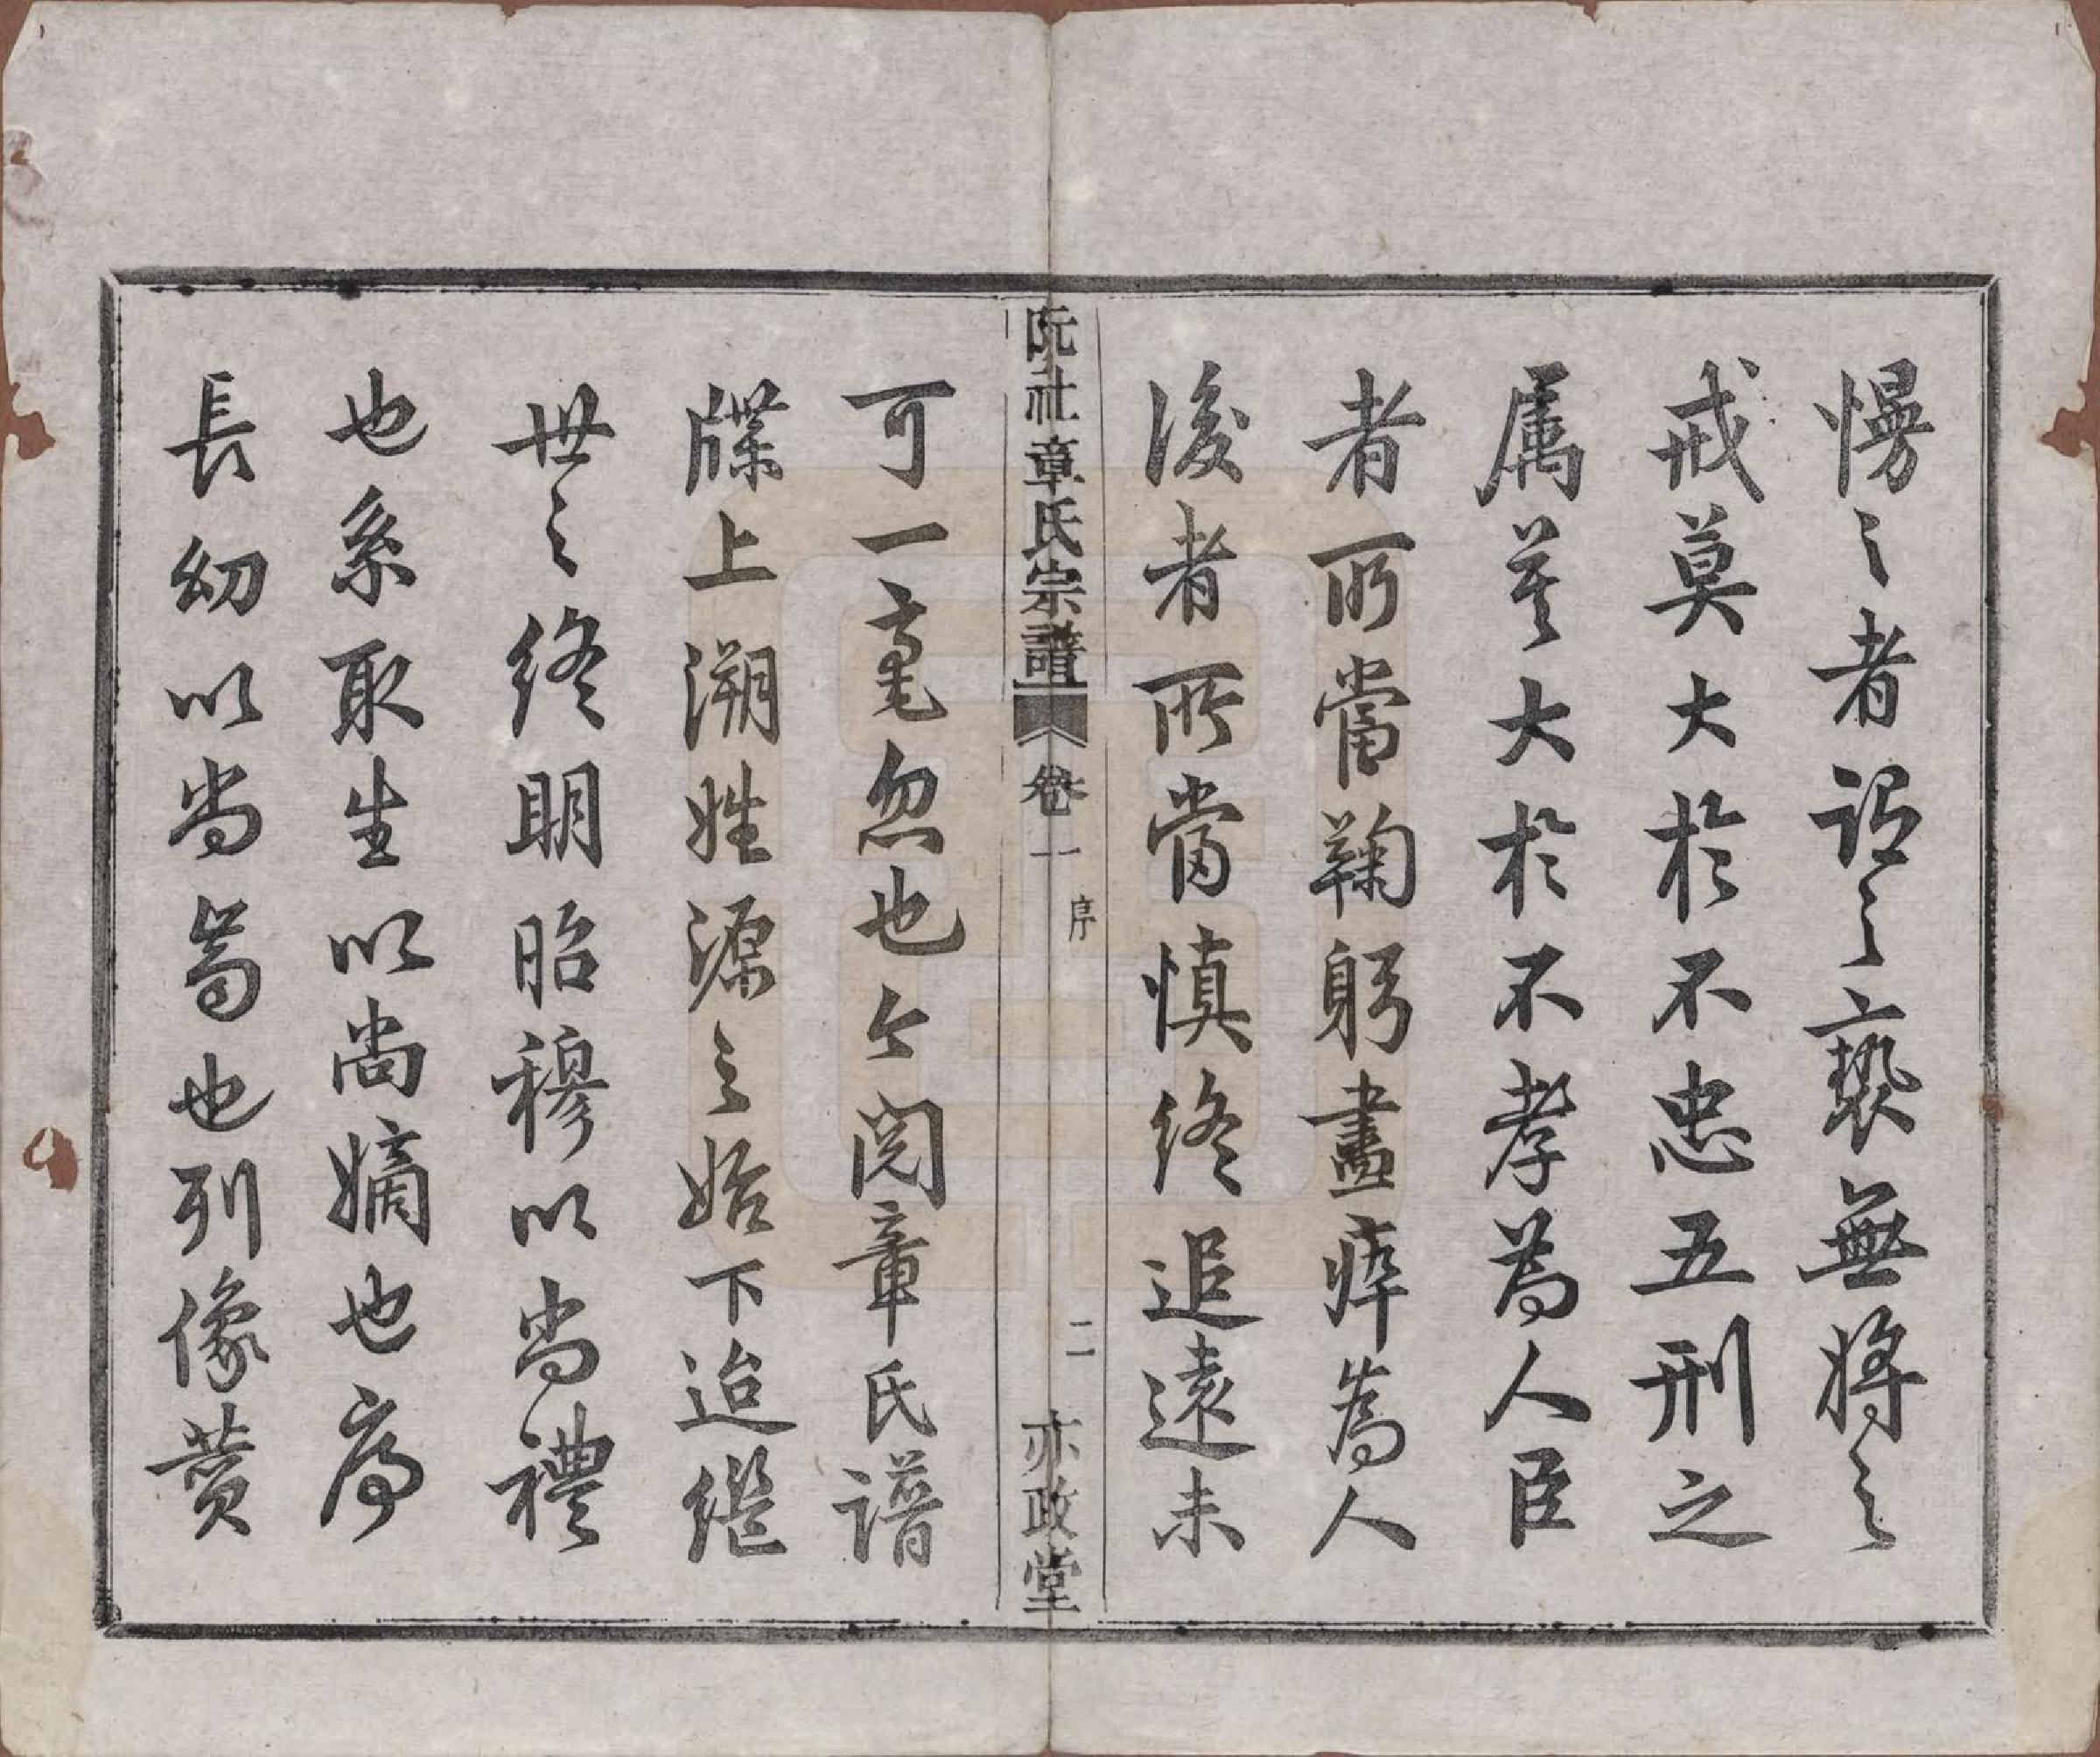 慢之者謂之褻無將之
戒莫大於不忠五刑之
屬莫大於不孝為人臣
者所當鞠躬盡瘁為人
後者所當慎終追遠未
阮社章氏宗譜 卷一 序 二 亦政堂
可一毫忽也今閱章氏譜
牒上溯姓源之始下迨繼
世之終明昭穆以尚禮
也系取生以尚嫡也序
長幼以尚齒也列像贊